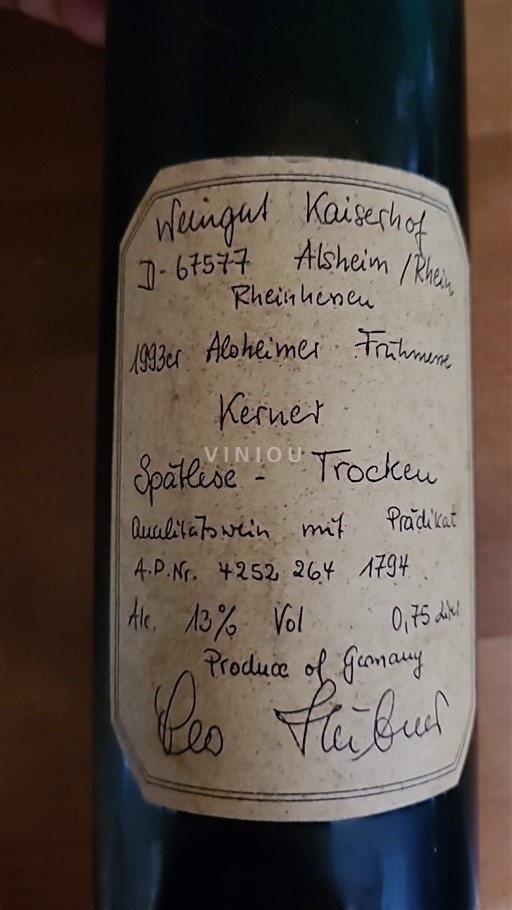 Weingut Kaiserhof
D-67577 Alsheim/Rhein
Rheinhessen
1993er Alsheimer Frühmesse
Kerner
VINIOU
Spätlese - Trocken
Qualitätswein mit Prädikat
A.P.Nr. 4252 264 1794
Alc. 13% Vol 0,75 Liter
Produce of Germany
Leo